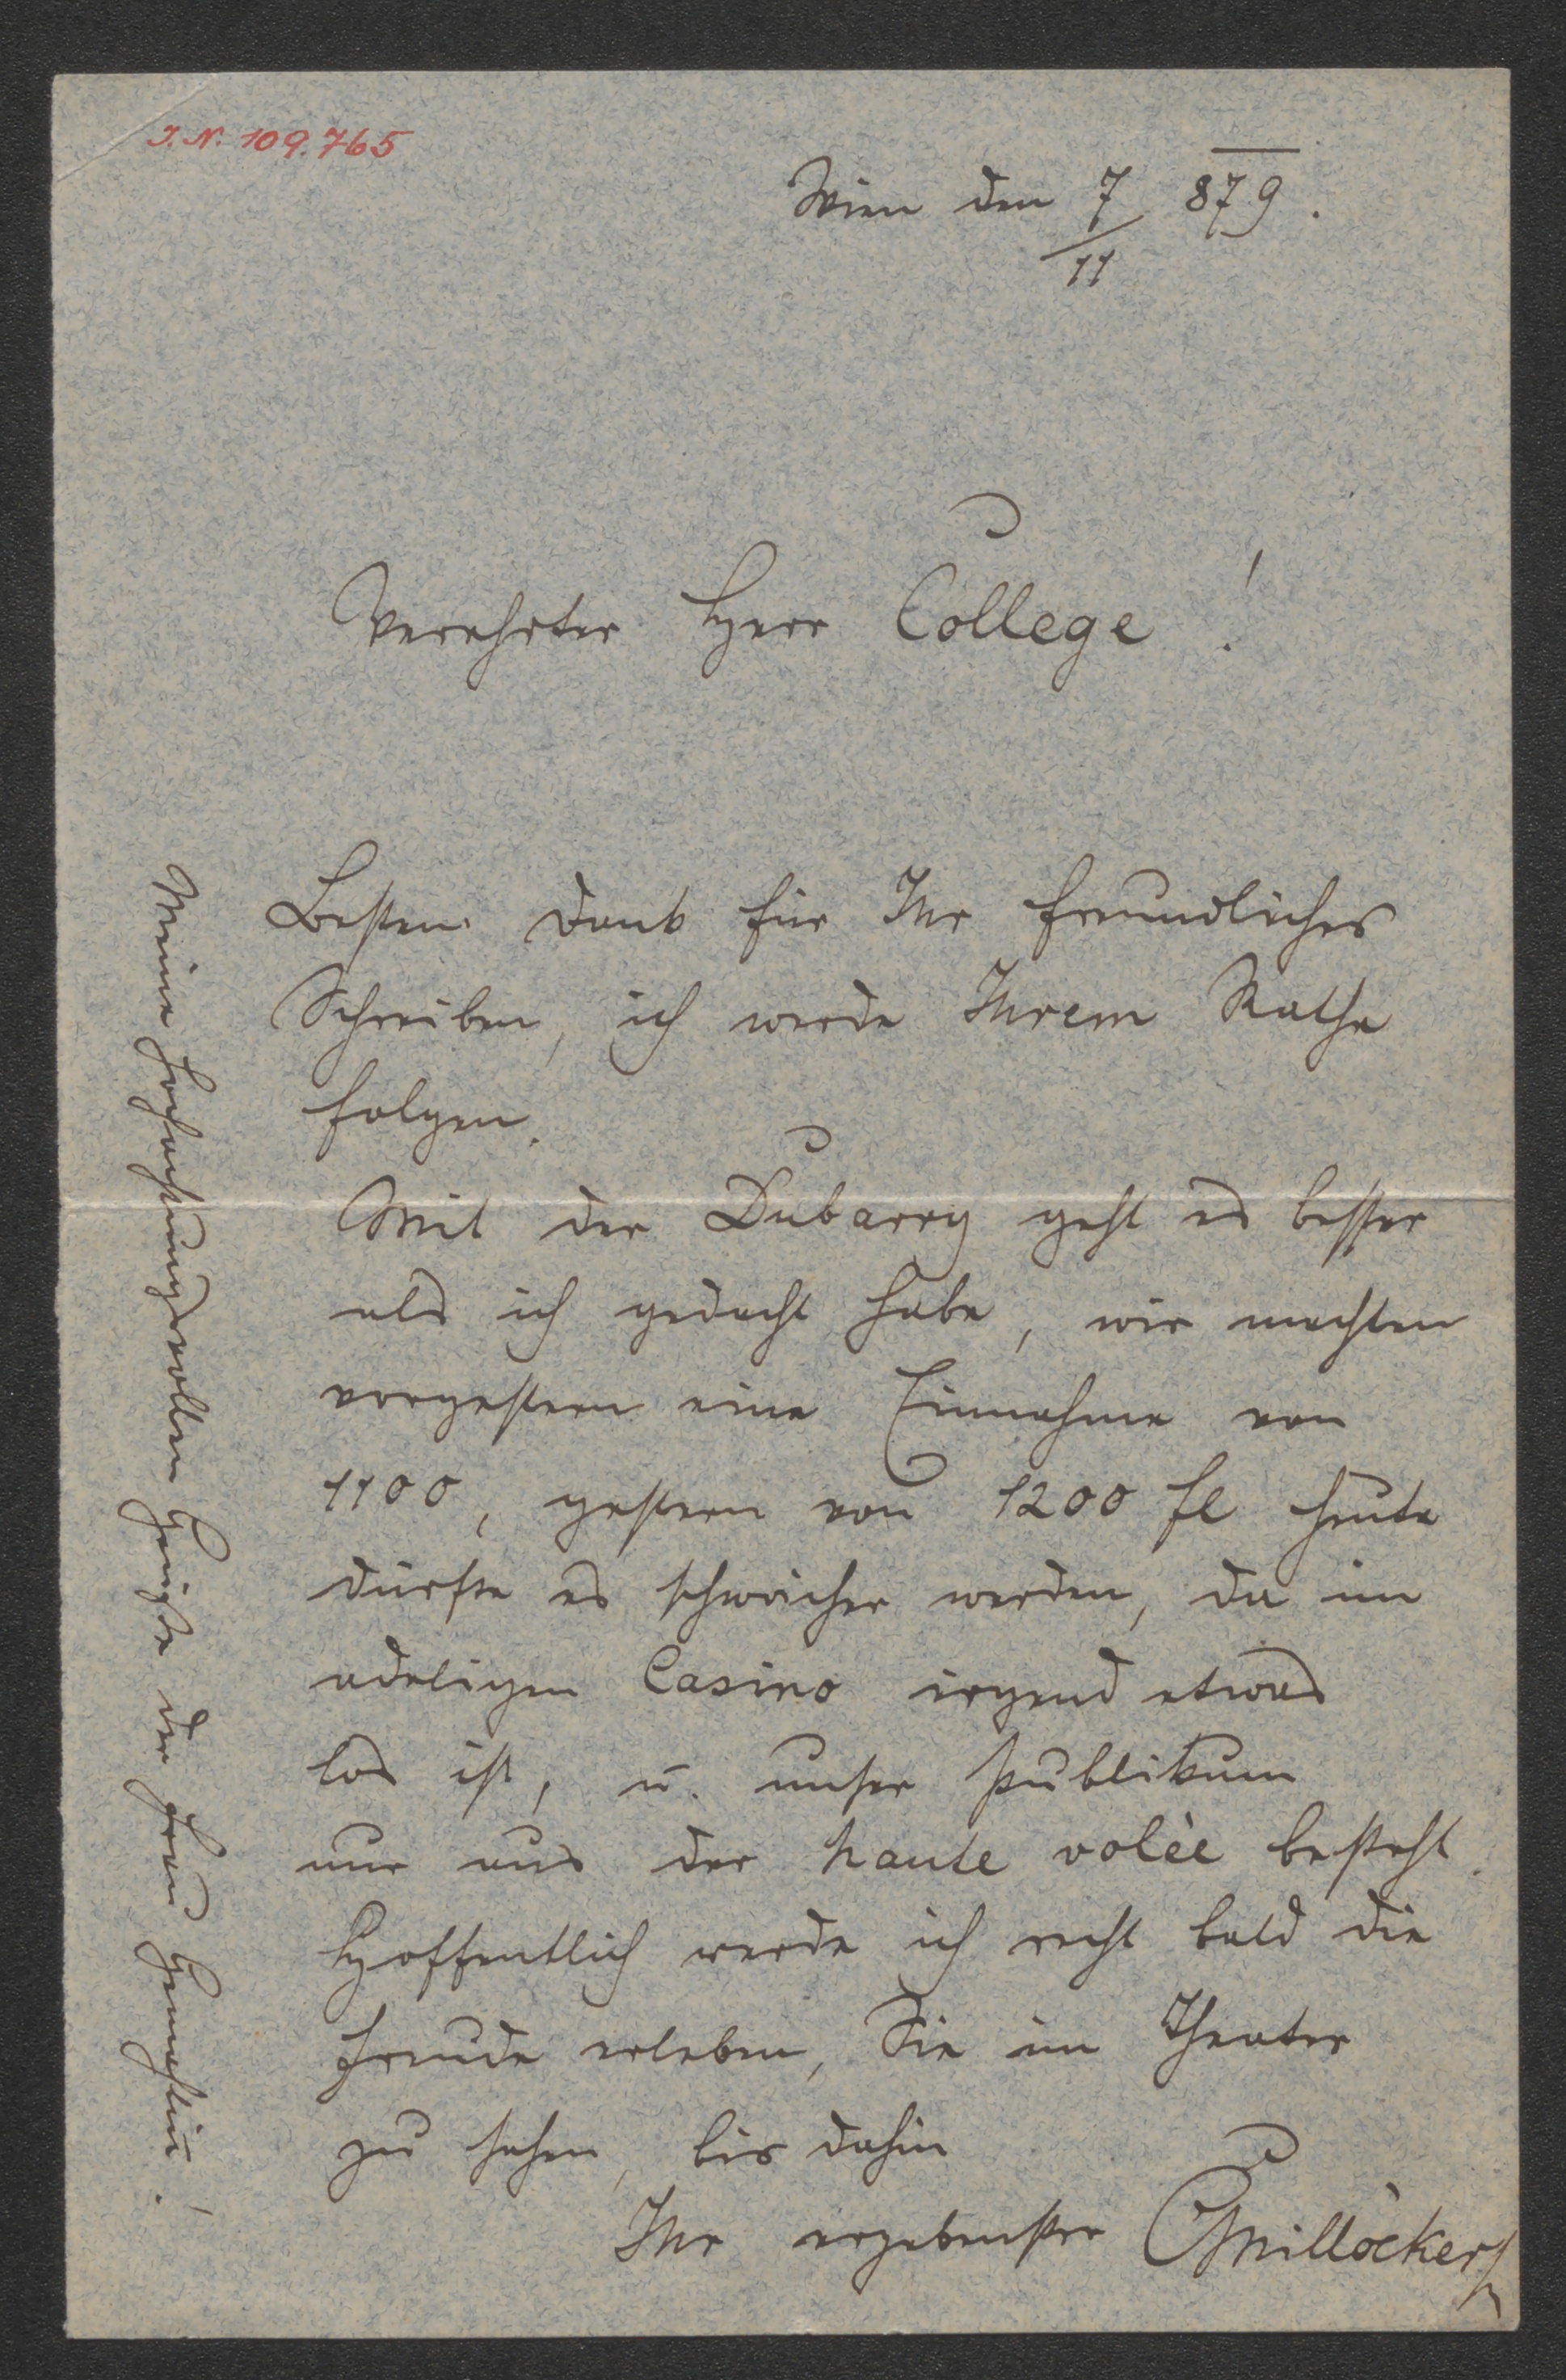 I. N. 109.765
Wien den 7/11 879.
Verehrter Herr College!
Besten Dank für Ihr freundliches
Schreiben, ich werde Ihrem Rathe
folgen.
Mit der Dubarry geht es besser
als ich gedacht habe, wir machten
vorgestern eine Einnahme von
1100, gestern von 1200 fl heute
dürfte es schwächer werden, da im
adeligen Casino irgend etwas
los ist, u. unser Publikum
nur aus der haute volèe besteht.
Hoffentlich werde ich recht bald die
Freude erleben, Sie im Theater
zu sehen, bis dahin
Ihr ergebenster CMillöcker
Meine hochachtungsvollen Grüße der Frau Gemahlin!